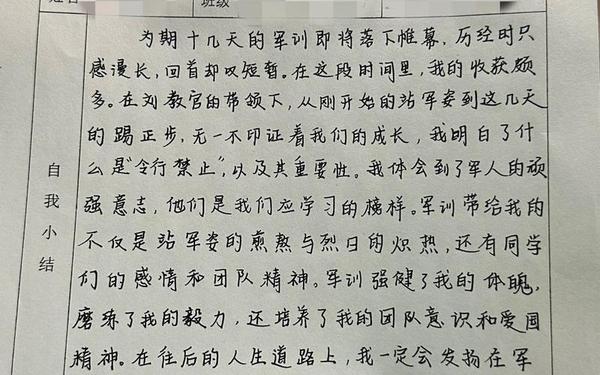 姓名 班级
为期十几天的军训即将落下帷幕，历经时只
感漫长，回首却叹短暂。在这段时间里，我的收获颇
多。在刘教官的带领下，从刚开始的站军姿到这几天
的踢正步，无一不印证着我们的成长，我明白了什
么是“令行禁止”，以及其重要性。我体会到了军人的顽
强意志，他们是我们应学习的榜样。军训带给我的
不仅是站军姿的煎熬与烈日的炽热，还有同学
们的感情和团队精神。军训强健了我的体魄，
磨练了我的毅力，还培养了我的团队意识和爱国
精神。在往后的人生道路上，我一定会发扬在军
自我小结